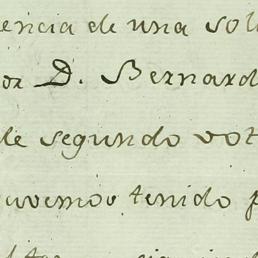 encia de una sol
or D. Bernard
de segundo vot
uvemos tenido p